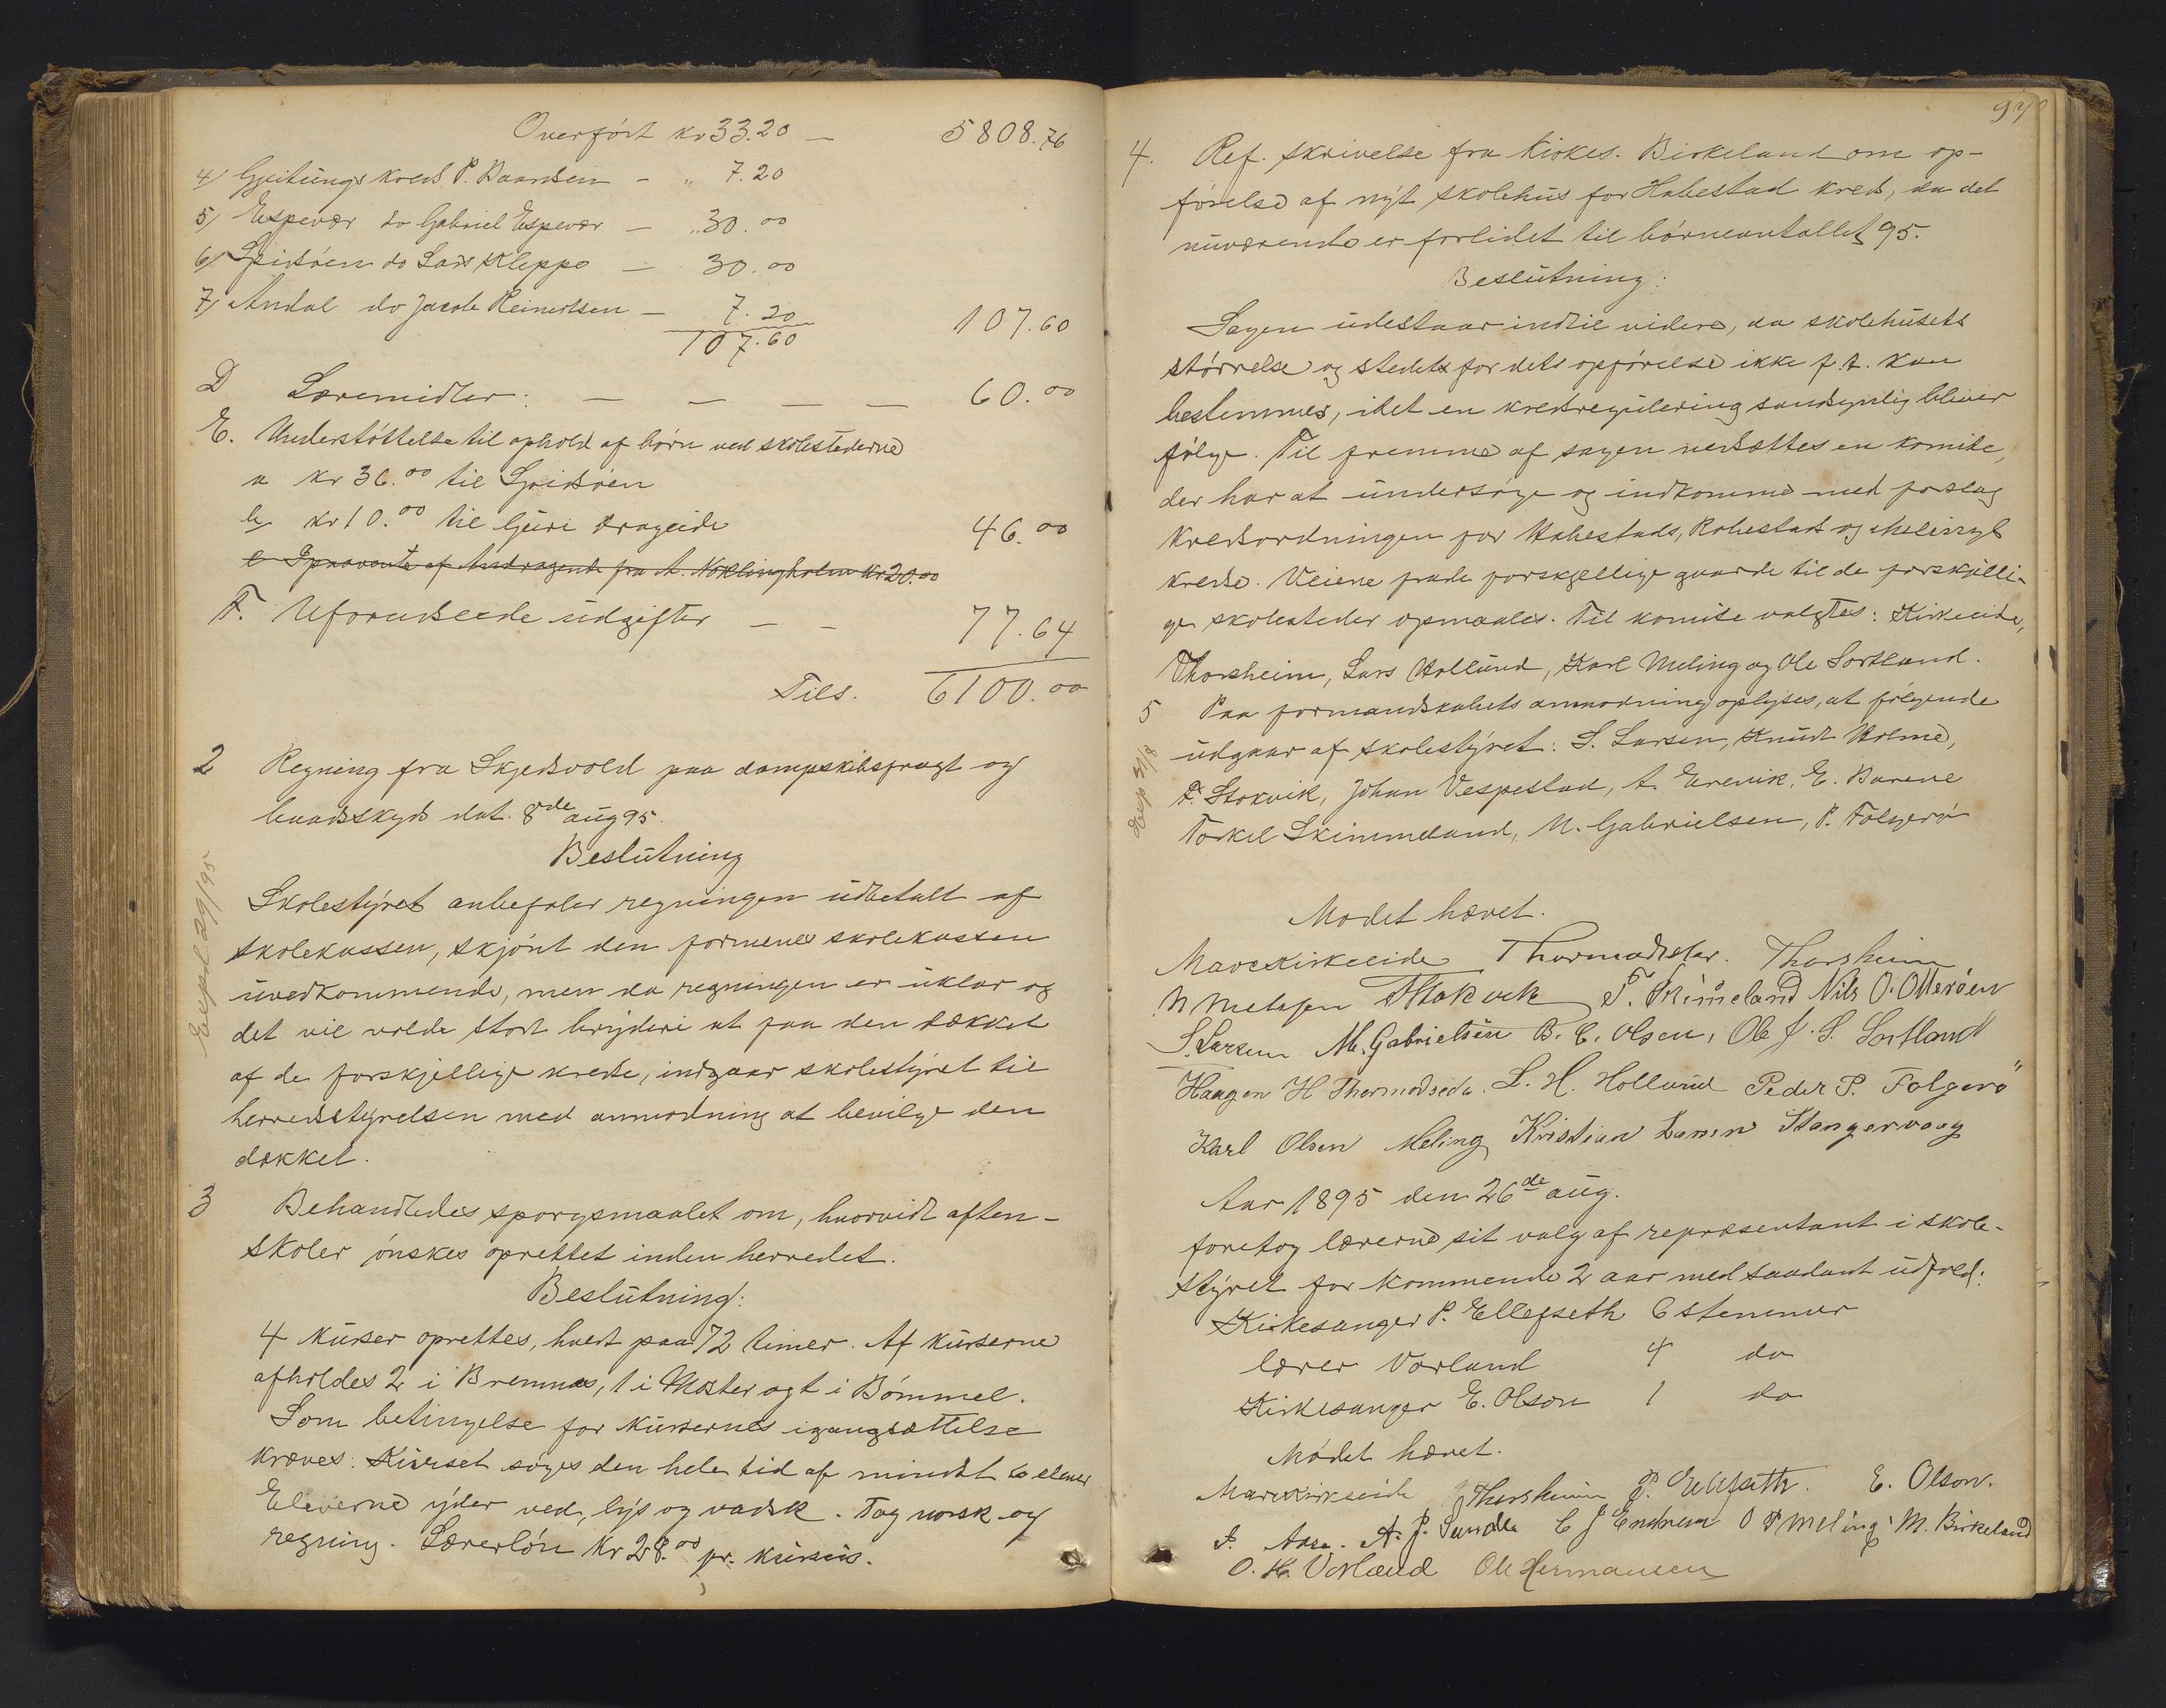 Overført kr 33.20 — 5808.76
4) Gjeitungs kreds P. Baardsen — " 7.20
5) Espevær do Gabriel Espevær — " 30.00
6) Spidsöen do Lars Kleppe — 30.00
7) Andal do Jacob Reinertsen — 7.20
107.60 107.60
D Læremidler: — — — — 60.00
E. Understöttelse til ophold af börn ved skolestederne
a kr 36.00 til Spidsöen
b kr 10.00 til Guri Drageide 46.00
F. Uforudseede udgifter — — 77.64
Tils. 6100.00
2 Regning fra Skjedsvold paa dampskibsfragt og
baadskyds dat. 8de aug 95.
Beslutning
Exped 29/8 95
Skolestyret anbefaler regningen udbetalt af
skolekassen, skjönt den formenes skolekassen
uvedkommende, men da regningen er uklar og
det vil volde stort bryderi at faa den dækket
af de forskjellige kredse, indgaar skolestyret til
herredsstyrelsen med anmodning at bevilge den
dækket.
3 Behandledes sporgsmaalet om, hvorvidt aften-
skoler önskes oprettet inden herredet.
Beslutning:
4 kurser oprettes, hvert paa 72 timer. Af kurserne
afholdes 2 i Bremnes, 1 i Moster og 1 i Bömmel.
Som betingelse for kursernes igangsættelse
kræves: Kurset söges den hele tid af mindst 10 elever
Eleverne yder ved, lys og vadsk. Fag norsk og
regning. Lærerlön kr 28.00 pr. kursus.
97
4. Ref. skrivelse fra kirkes. Birkeland om op-
förelse af nyt skolehus for Habestad kreds, da det
nuværende er forlidet til börneantallet, 95.
Beslutning:
Sagen udestaar indtil videre, da skolehusets
störrelse og stedet for dets opförelse ikke f. t. kan
bestemmes, idet en kredsregulering sandsynlig bliver
fölge. Til fremme af sagen nedsættes en komite,
der har at undersöge og indkomme med forslag
kredsordningen for Habestads, Robestad og Melings
kredse. Veiene fra de forskjellige gaarde til de forskjelli-
ge skolesteder opmaales. Til komite valgtes: Kirkeeide,
Thorsheim, Lars Hollund, Karl Meling og Ole Sortland.
5 Paa formandskabets anmodning oplyses, at fölgende
Exp 31/8
udgaar af skolestyret: S. Larsen, Knudt Holme,
F. Stokvik, Johan Vespestad, A. Grenvik, E. Barene
Torkel Skimmeland, M. Gabrielsen, P. Folgerö
Modet hævet.
Mare Kirkeeide Thormodsæter. Thorsheim
N Melesen F Stokvik T. Skimeland Nils O. Otteröen
S. Larsen M. Gabrielsen B. C. Olsen, Ole J. S. Sortland
Haagen H Thormodsæter. L. H. Hollund Peder P. Folgerö
Karl Olsen Meling Kristian Larsen Stangervaag
Aar 1895 den 26de aug.
foretog lærerne sit valg af repræsentant i skole-
styret for kommende 2 aar med saadant udfald:
Kirkesanger P. Ellefseth 6 stemmer
lærer Vorland 4 do
Kirkesanger E. Olson 1 do
Mödet hævet.
Mare Kirkeeide Thorsheim P. Ellefseth. E. Olson.
A. P. Sunde C J Endresen O P Meling M. Birkeland
O. H. Vorland Ole Hermansen